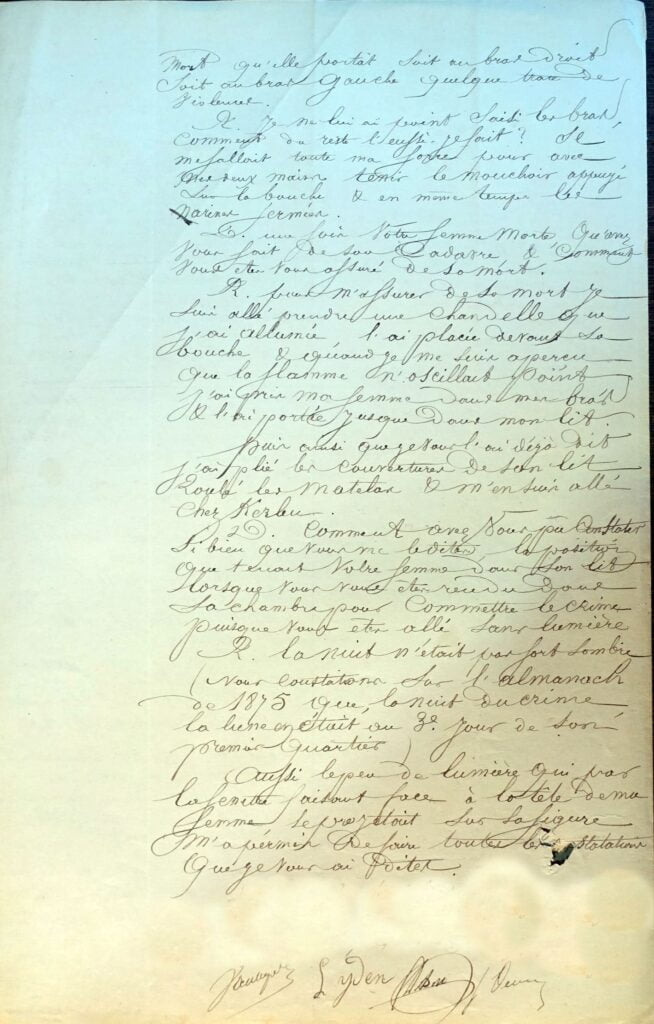 mort qu'elle portât soit au bras droit
soit au bras gauche quelque trace de
violences.
R. Je ne lui ai point saisi les bras,
comment du reste l'eussé-je fait ? Il
me fallait toute ma force pour avec
mes deux mains tenir le mouchoir appuyé
sur la bouche & en même temps les
narines fermées.
D. une fois votre femme morte qu'avez
vous fait de son cadavre & comment
vous êtes vous assuré de sa mort.
R. pour m'assurer de sa mort je
suis allé prendre une chandelle que
j'ai allumée l'ai placée devant sa
bouche & quand je me suis aperçu
que la flamme n'oscillait point
j'ai pris ma femme dans mes bras
& l'ai portée jusque dans mon lit.
puis ainsi que je vous l'ai déjà dit
j'ai plié les couvertures de son lit
roulé les matelas & m'en suis allé
chez Kerleu.
D. Comment avez vous pu constater
si bien que vous me le dites la position
que tenait votre femme dans son lit
lorsque vous vous êtes rendu dans
sa chambre pour commettre le crime
puisque vous êtes allé sans lumière
R. la nuit n'était pas fort sombre
(nous constatons sur l'almanach
de 1875 que, la nuit du crime
la lune en était au 3e jour de son
premier quartier)
Aussi le peu de lumière qui par
la fenêtre faisant face à la tête de ma
femme se projetait sur sa figure
m'a permis de faire toutes les constatations
que je vous ai dites.